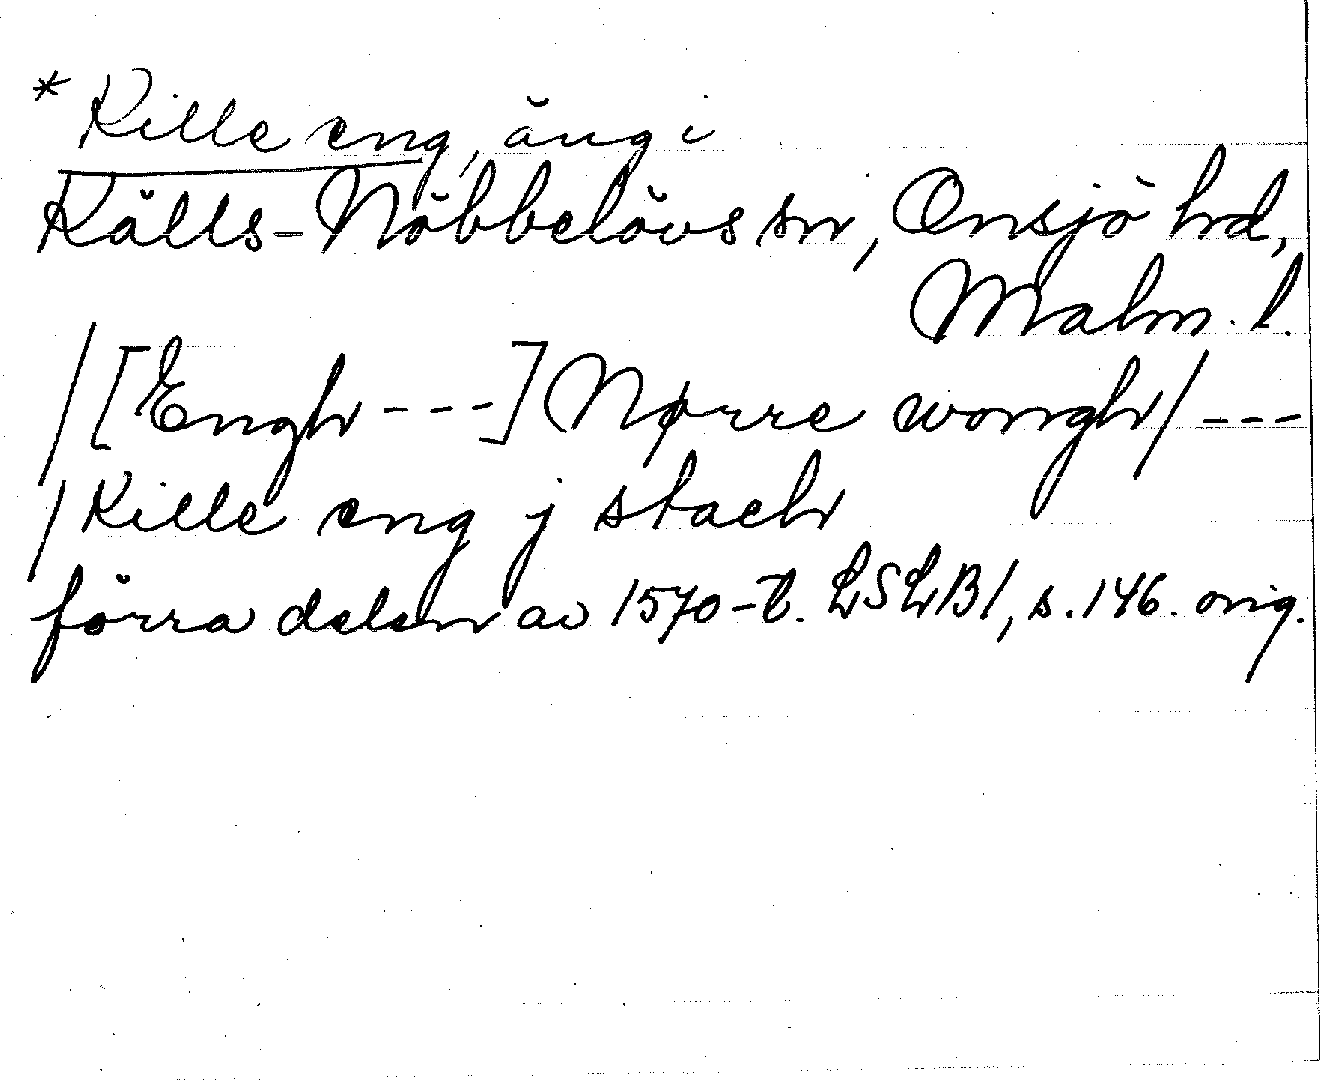 * Kille eng, äng i
Källs-Nöbbelövs sn, Onsjö hd,
Malm. l.
/[Engh ---] Nørre wongh/ ---
/Kille eng j stach
förra delen av 1570-t. LSLB1, s. 146. orig.